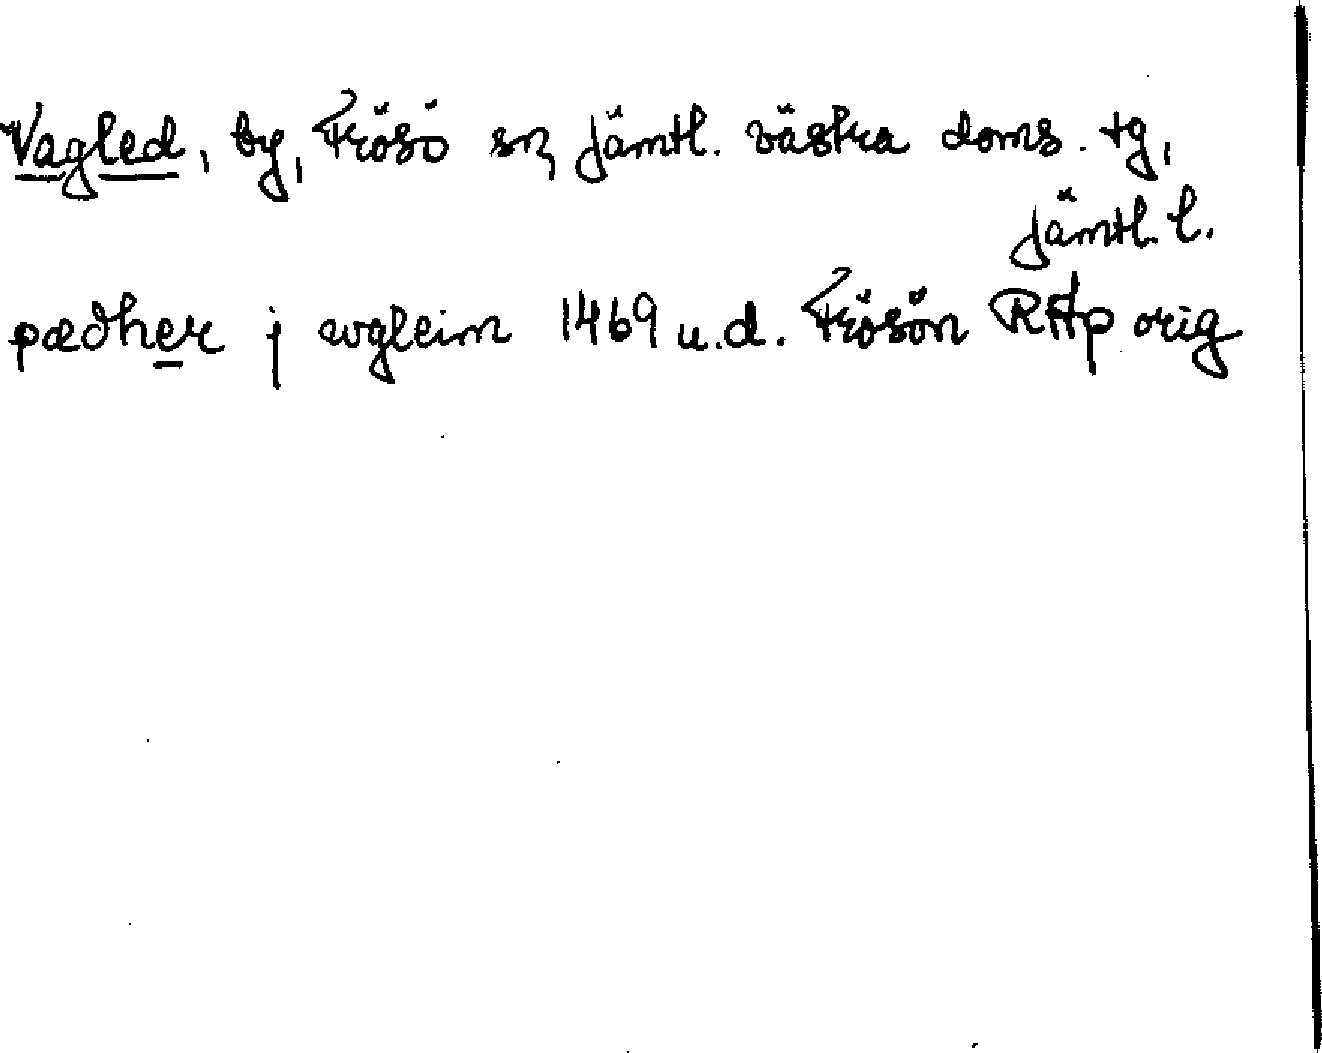 Vagled, by, Frösö sn, Jämtl. västra doms. tg,
Jämtl. l.
pædher j wgleim 1469 u.d. Frösön RAp orig